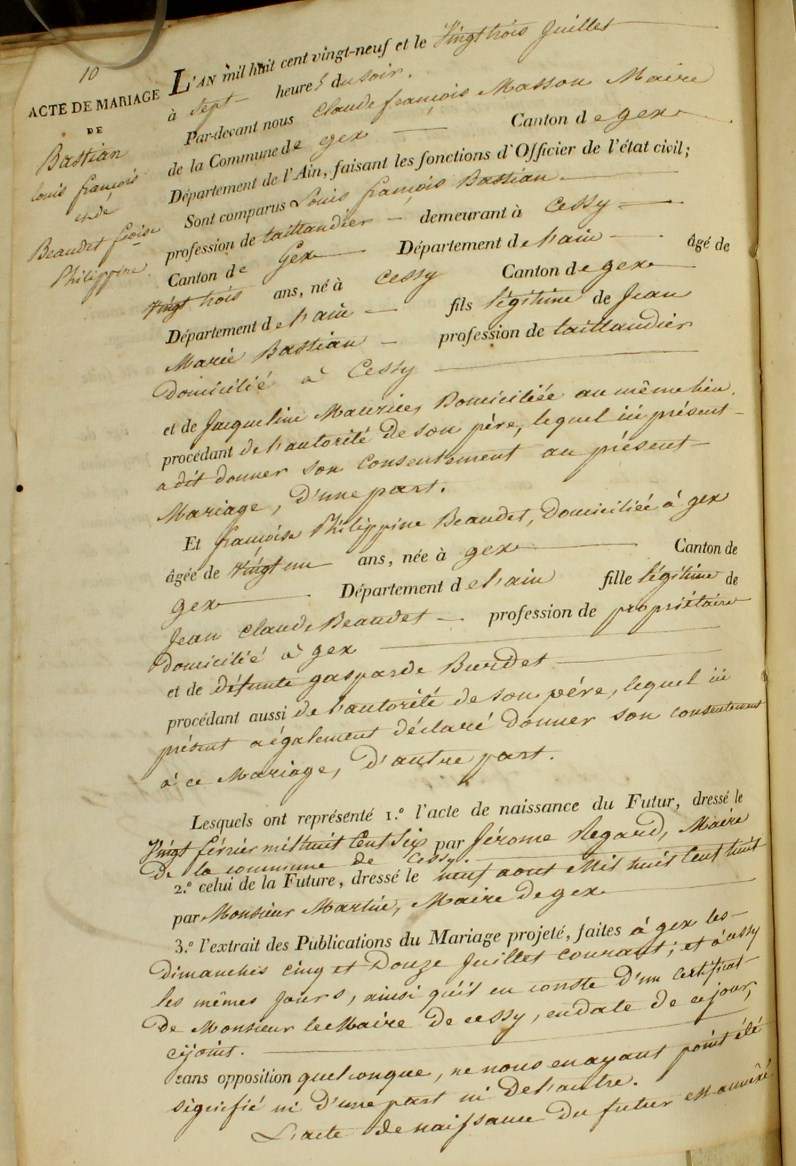 10
ACTE DE MARIAGE
DE
Bastian
Louis françois
et de
Beaudet froise
Philippine
L'AN mil huit cent vingt-neuf et le Vingt trois Juillet
à sept heures du soir.
Par-devant nous Claude françois Masson Maire
de la Commune de gex Canton de gex
Département de l'Ain, faisant les fonctions d'Officier de l'état civil;
Sont comparus Louis françois Bastian
profession de taillandier demeurant à Cessy
Canton de Gex Département de l'ain âgé de
Vingt trois ans, né à Cessy Canton de gex
Département de l'ain fils légitime de Jean
Marie Bastian profession de taillandier
Domicilié à Cessy
et de Jacqueline Maurier, Domiciliée au même lieu.
procédant de l'autorité de son père, lequel ici présent
a dit donner son consentement au présent
Mariage, d'une part.
Et françoise Philippine Beaudet, Domiciliée à gex
âgée de Vingt un ans, née à gex Canton de
gex Département de l'ain fille légitime de
Jean Claude Beaudet profession de propriétaire
Domicilié à gex
et de défunte gasparde Buridet
procédant aussi de l'autorité de son père, lequel ici
présent a également déclaré donner son consentement
à ce Mariage, d'autre part.
Lesquels ont représenté 1.º l'acte de naissance du Futur, dressé le
Vingt février mil huit Cent Six par Jérome Regard, Maire
de la commune de Cessy.
2.º celui de la Future, dressé le neuf aout Mil huit Cent huit
par Monsieur Martin, Maire de gex
3.º l'extrait des Publications du Mariage projeté, faites à gex les
Dimanches cinq et Douze Juillet courant; et à cessy
les mêmes jours, ainsi qu'il en conste d'un Certificat
de Monsieur le Maire de cessy, en date de ce jour,
cijoint.
sans opposition quelconque, ne nous en ayant point été
signifié ni d'une part ni de l'autre.
L'acte de naissance du futur est